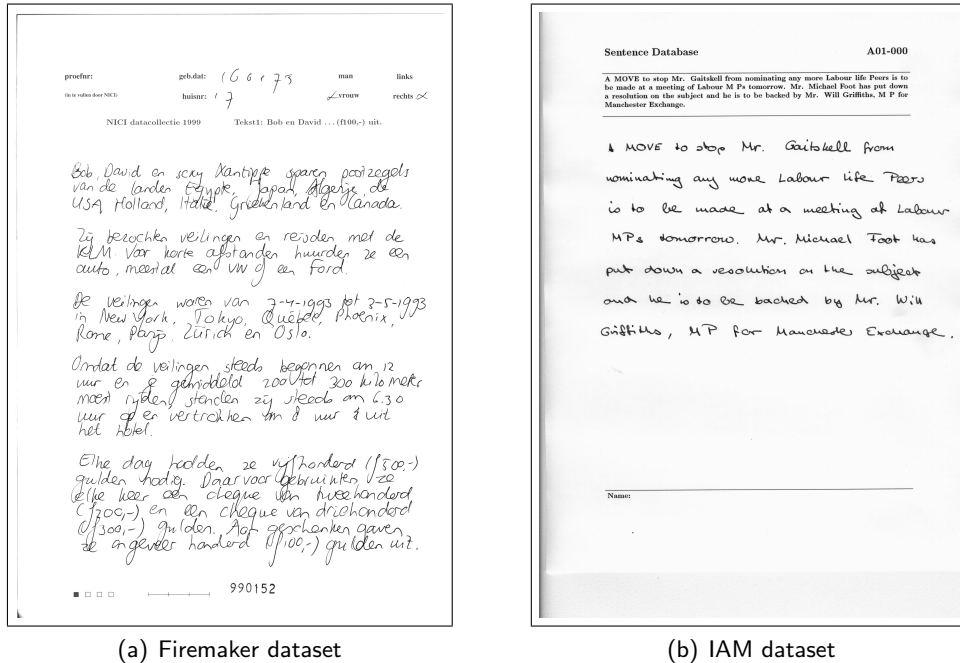 proefnr: geb.dat: 160173 man links
(in te vullen door NICI) huisnr: 17 vrouw rechts
NICI datacollectie 1999 Tekst1: Bob en David ... (f100,-) uit.
Bob, David en sexy Xantippe sparen postzegels
van de landen Egypte, Japan, Algerije, de
USA, Holland, Italië, Griekenland en Canada.
Zij bezochten veilingen en reisden met de
KLM. Voor korte afstanden huurden ze een
auto, meestal een VW of een Ford.
De veilingen waren van 7-4-1993 tot 3-5-1993
in New York, Tokyo, Québec, Phoenix,
Rome, Parijs, Zürich en Oslo.
Omdat de veilingen steeds begonnen om 12
uur en ze gemiddeld 200 tot 300 kilometer
moest rijden, stonden zij steeds om 6.30
uur op en vertrokken om 8 uur uit
het hotel.
Elke dag hadden ze vijfhonderd (f500,-)
gulden nodig. Daarvoor gebruikten ze
elke keer een cheque van tweehonderd
(f200,-) en een cheque van driehonderd
(f300,-) gulden. Aan geschenken gaven
ze ongeveer honderd (f100,-) gulden uit.
990152
(a) Firemaker dataset
Sentence Database A01-000
A MOVE to stop Mr. Gaitskell from nominating any more Labour life Peers is to
be made at a meeting of Labour M Ps tomorrow. Mr. Michael Foot has put down
a resolution on the subject and he is to be backed by Mr. Will Griffiths, M P for
Manchester Exchange.
A MOVE to stop Mr. Gaitskell from
nominating any more Labour life Peers
is to be made at a meeting of Labour
MPs tomorrow. Mr. Michael Foot has
put down a resolution on the subject
and he is to be backed by Mr. Will
Griffiths, MP for Manchester Exchange.
Name:
(b) IAM dataset